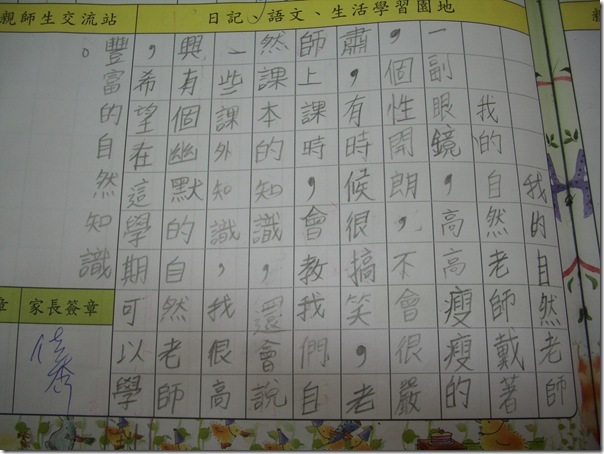 日記、語文、生活學習園地
我的自然老師
我的自然老師戴著
一副眼鏡,高高瘦瘦的
,個性開朗,不會很嚴
肅,有時候很搞笑,老
師上課時,會教我們自
然課本的知識,還會說
一些課外知識,我很高
興有個幽默的自然老師
,希望在這學期可以學
豐富的自然知識
。
親師生交流站
家長簽章
章